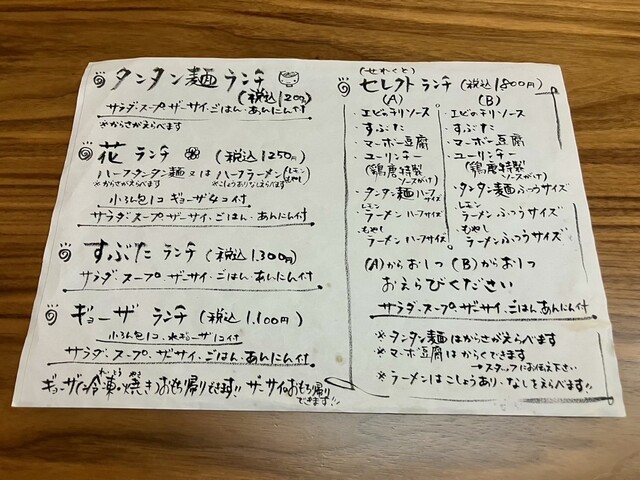 タンタン麺 ランチ
(税込 1200円)
サラダ・スープ ザーサイ・ごはん・あんにん付
※からさがえらべます
花 ランチ (税込 1250円)
ハーフタンタン麺 又は ハーフラーメン (レモン もやし)
※からさがえらべます ※こしょうありなしえらべます
小ろん包1コ ギョーザ4コ付
サラダ・スープ ザーサイ・ごはん・あんにん付
すぶた ランチ (税込 1,300円)
サラダ・スープ ザーサイ・ごはん・あんにん付
ギョーザ ランチ (税込 1,100円)
小ろん包1コ、水ギョーザ1コ付
サラダ・スープ、ザーサイ・ごはん・あんにん付
ギョーザは冷凍・焼きおもち帰りもできます!! ザーサイもおもち帰り
れいとう やき
できます!!
(せれくと)
セレクト ランチ (税込 1800円)
(A) (B)
エビのチリソース エビのチリソース
すぶた すぶた
マーボー豆腐 マーボー豆腐
ユーリンチー ユーリンチー
(鶏唐特製 ソースがけ) (鶏唐特製 ソースがけ)
タンタン麺ハーフサイズ タンタン麺ふつうサイズ
レモン レモン
ラーメン ハーフサイズ ラーメンふつうサイズ
もやし もやし
ラーメン ハーフサイズ ラーメンふつうサイズ
(A)から お1つ (B)から お1つ
おえらびください
サラダ・スープ ザーサイ、ごはん あんにん付
※ タンタン麺はからさがえらべます
※ マーボ豆腐は からくできます
→スタッフにお伝え下さい
※ ラーメンはこしょうあり・なしをえらべます!!